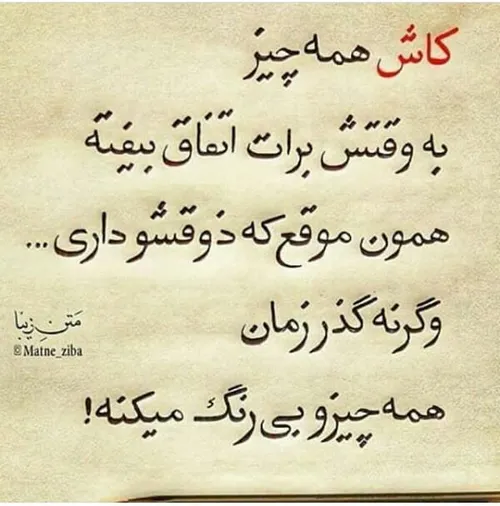 کاش همه چیز
به وقتش برات اتفاق بیفته
همون موقع که ذوقشو داری...
وگرنه گذر زمان
همه چیزو بی رنگ میکنه!
متن زیبا
©Matne_ziba